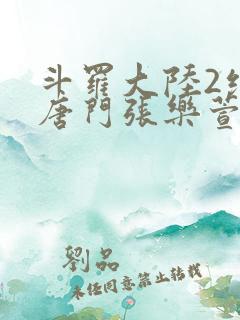 斗羅大陸2絕
唐門張樂萱
劉品
未经同意禁止转载